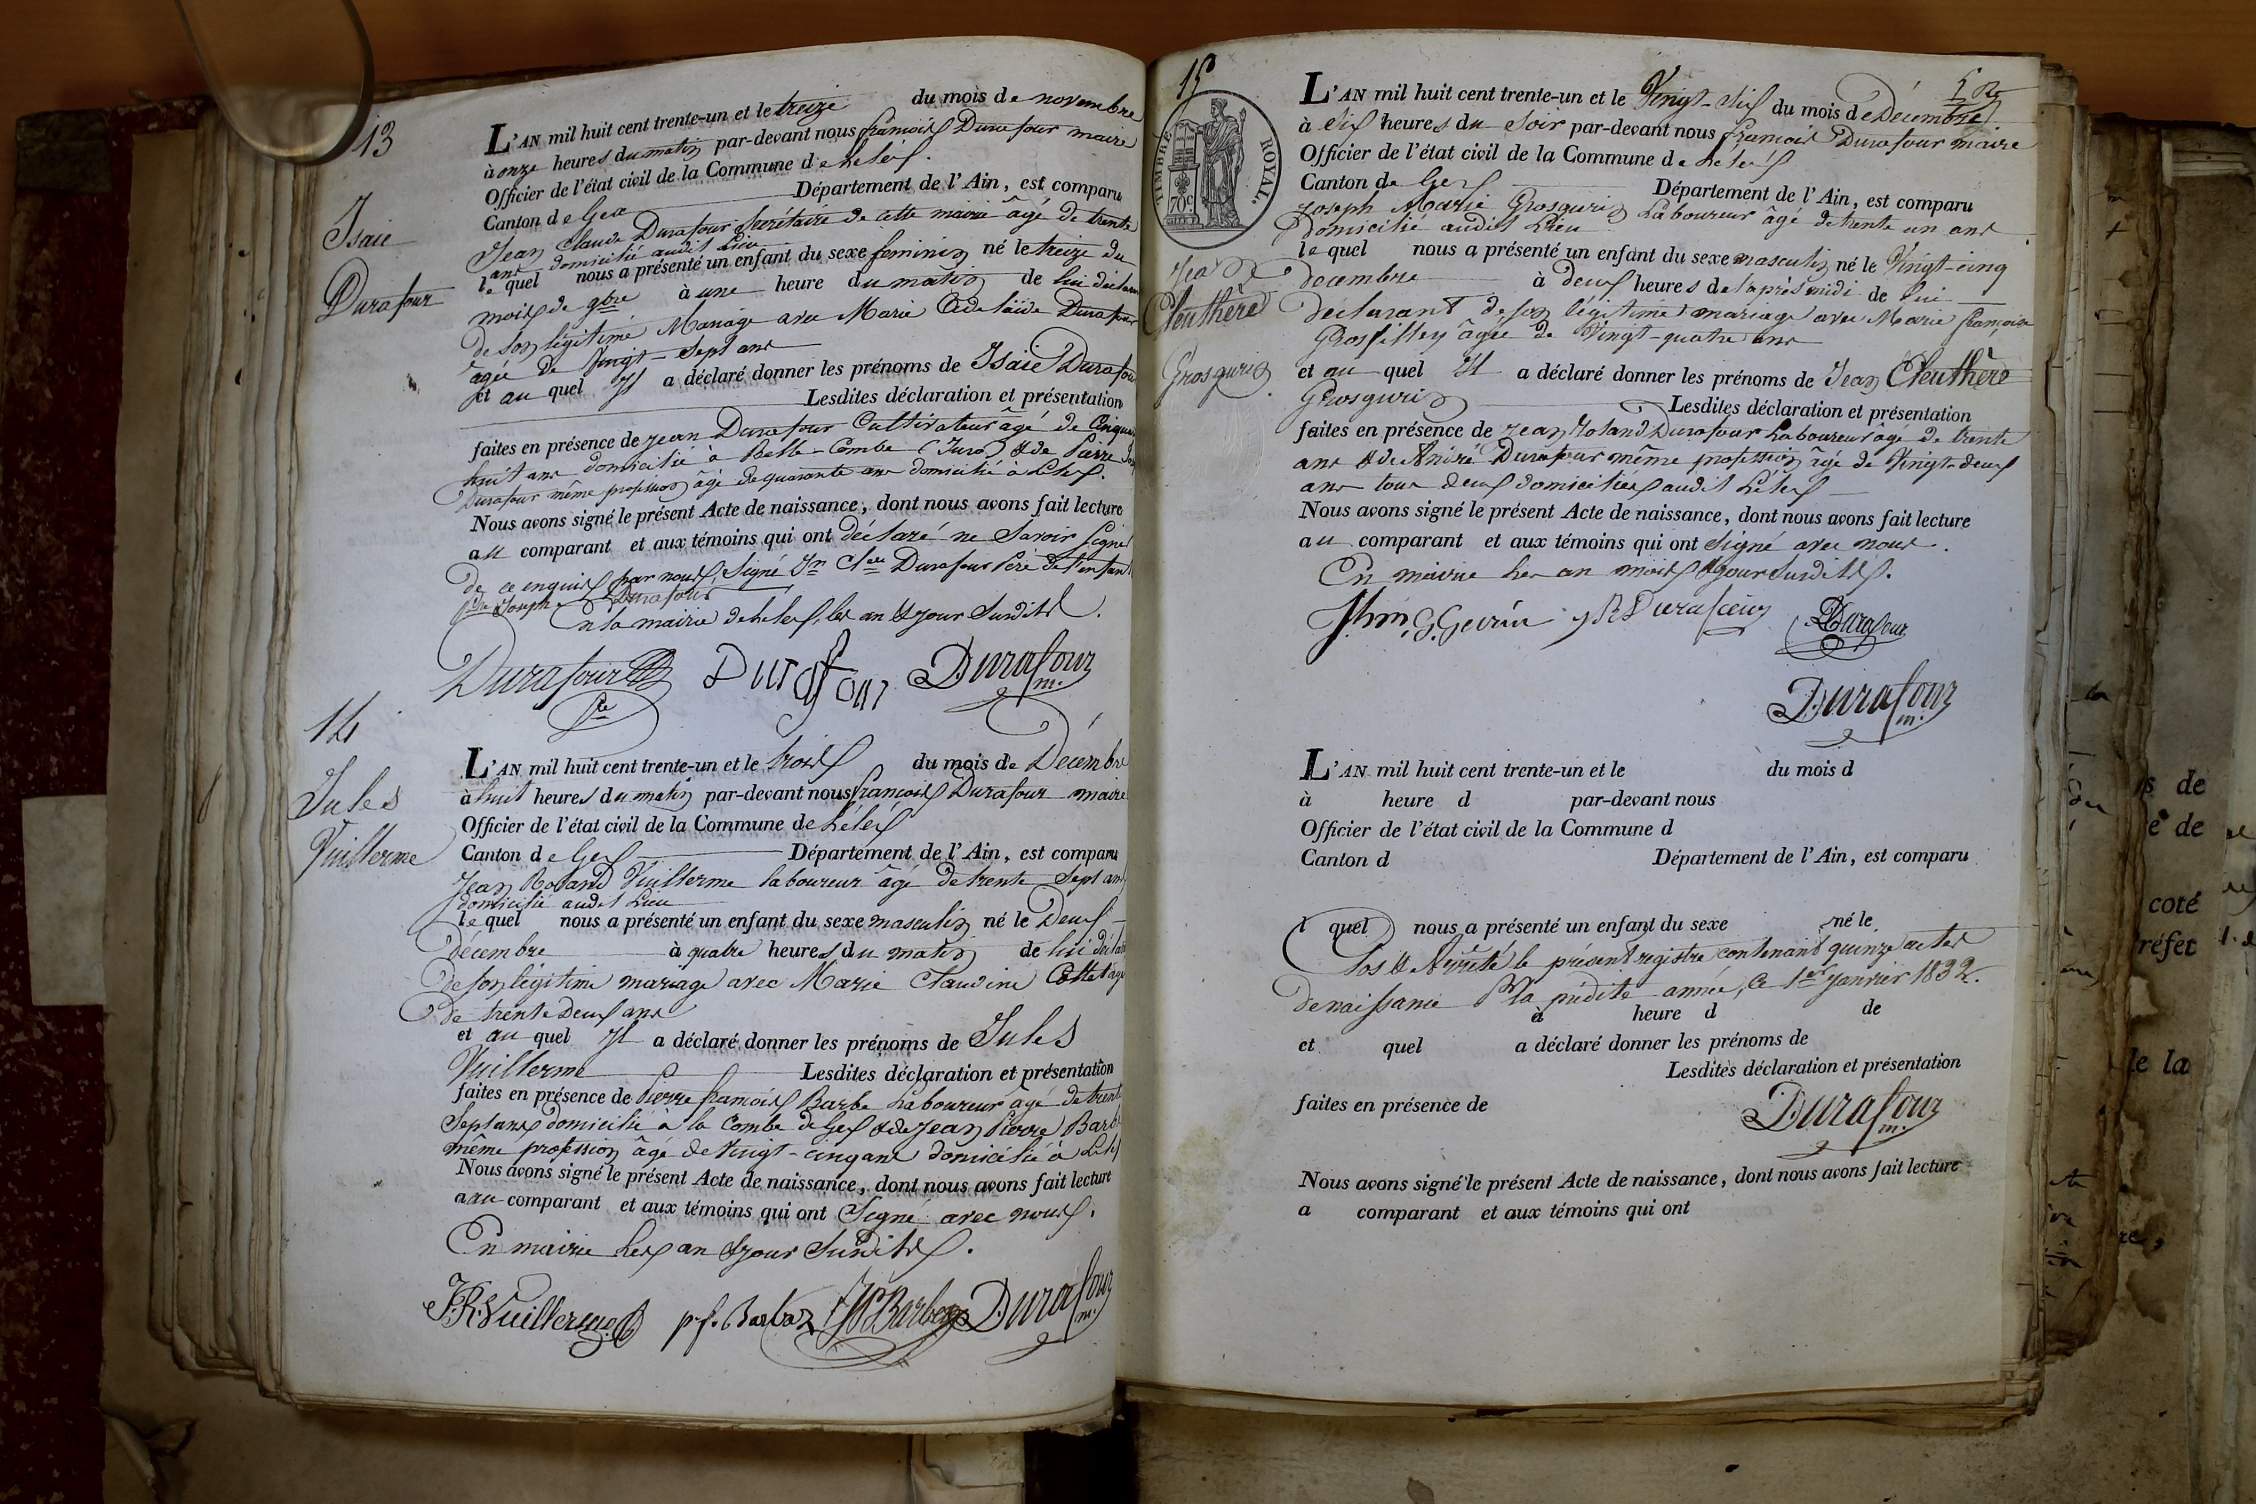 13
Isaie
Durafour
L'AN mil huit cent trente-un et le treize du mois de novembre
à onze heures du matin par-devant nous françois Durafour maire
Officier de l'état civil de la Commune de Lelex.
Canton de Gex Département de l'Ain, est comparu
Jean Claude Durafour Secrétaire de cette mairie âgé de trente
ans domicilié audit Lieu
lequel nous a présenté un enfant du sexe feminin né le treize du
mois de 9bre à une heure du matin de lui déclarant
de son légitime Mariage avec Marie Adelaïde Durafour
agée de Vingt-Sept ans
et au quel Il a déclaré donner les prénoms de Isaie Durafour
Lesdites déclaration et présentation
faites en présence de jean Durafour Cultivateur âgé de Cinquante
huit ans domicilié à Belle-Combe (Jura) & de Pierre
Durafour même profession âgé de quarante ans domicilié à Lelex.
Nous avons signé le présent Acte de naissance, dont nous avons fait lecture
au comparant et aux témoins qui ont déclaré ne Savoir Signer
de ce enquis par nous, Signé Jn Cde Durafour Père de l'enfant
Joseph Durafour
En la mairie de Lelex, les an & jour Susdits.
Durafour Durafour Durafour m.
14
Jules
Vuillerme
L'AN mil huit cent trente-un et le trois du mois de Décembre
à huit heures du matin par-devant nous françois Durafour maire
Officier de l'état civil de la Commune de Lélex
Canton de Gex Département de l'Ain, est comparu
Jean Roland Vuillerme laboureur âgé de trente Sept ans
domicilié audit Lieu
lequel nous a présenté un enfant du sexe masculin né le Deux
décembre à quatre heures du matin de lui déclarant
de son légitime mariage avec Marie Claudine Cottet agée
de trente Deux ans
et au quel Il a déclaré donner les prénoms de Jules
Vuillerme Lesdites déclaration et présentation
faites en présence de Pierre françois Barbe Laboureur agé de trente
Sept ans domicilié à la Combe de Gex & de Jean Pierre Barbe
même profession âgé de Vingt-cinq ans domicilié à Lelex
Nous avons signé le présent Acte de naissance, dont nous avons fait lecture
a au comparant et aux témoins qui ont Signé avec nous.
En mairie Les an & jour Susdits.
J.R. Vuillerme p f. Barbe JP Barbe Durafour m.
15
TIMBRE ROYAL.
70c
L'AN mil huit cent trente-un et le Vingt-Six du mois de Décembre
à Six heures du Soir par-devant nous françois Durafour maire
Officier de l'état civil de la Commune de Lelex
Canton de Gex Département de l'Ain, est comparu
Joseph Marie Grosgurin Laboureur âgé de trente un ans
Domicilié audit Lieu
lequel nous a présenté un enfant du sexe masculin né le Vingt-cinq
Jean
Eleuthère
Grosgurin
decembre à deux heures de l'après midi de lui
déclarant de son légitime mariage avec Marie françoise
Grosfilley âgée de Vingt-quatre ans
et au quel Il a déclaré donner les prénoms de Jean Eleuthère
Grosgurin Lesdites déclaration et présentation
faites en présence de Jean Roland Durafour Laboureur âgé de trente
ans & de André Durafour même profession âgé de Vingt-deux
ans tous deux domiciliés audit Lélex
Nous avons signé le présent Acte de naissance, dont nous avons fait lecture
au comparant et aux témoins qui ont Signé avec nous.
En mairie Les an mois & jour Susdits.
Durafour
Durafour m.
L'AN mil huit cent trente-un et le du mois d
à heure d par-devant nous
Officier de l'état civil de la Commune d
Canton d Département de l'Ain, est comparu
l quel nous a présenté un enfant du sexe né le
Clos & Arrêté le présent registre contenant quinze actes
de naissance Pr la prédite année, ce 1er janvier 1832.
à heure d de
et quel a déclaré donner les prénoms de
Lesdites déclaration et présentation
faites en présence de
Durafour m.
Nous avons signé le présent Acte de naissance, dont nous avons fait lecture
a comparant et aux témoins qui ont
s de
e de
coté
réfet
de la